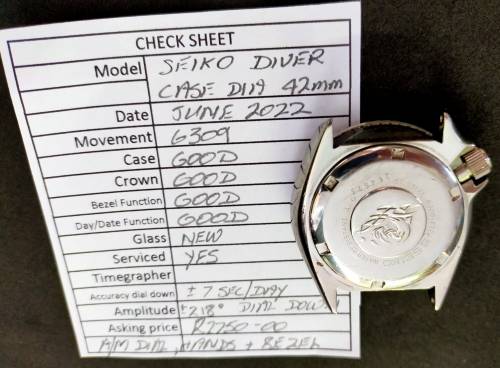 CHECK SHEET
Model SEIKO DIVER
CASE DIA 42mm
Date JUNE 2022
Movement 6309
Case GOOD
Crown GOOD
Bezel Function GOOD
Day/Date Function GOOD
Glass NEW
Serviced YES
Timegrapher
Accuracy dial down ± 7 SEC/DAY
Amplitude ±218° DIAL DOWN
Asking price R7750-00
A/M DIAL, HANDS + BEZEL
SEIKO